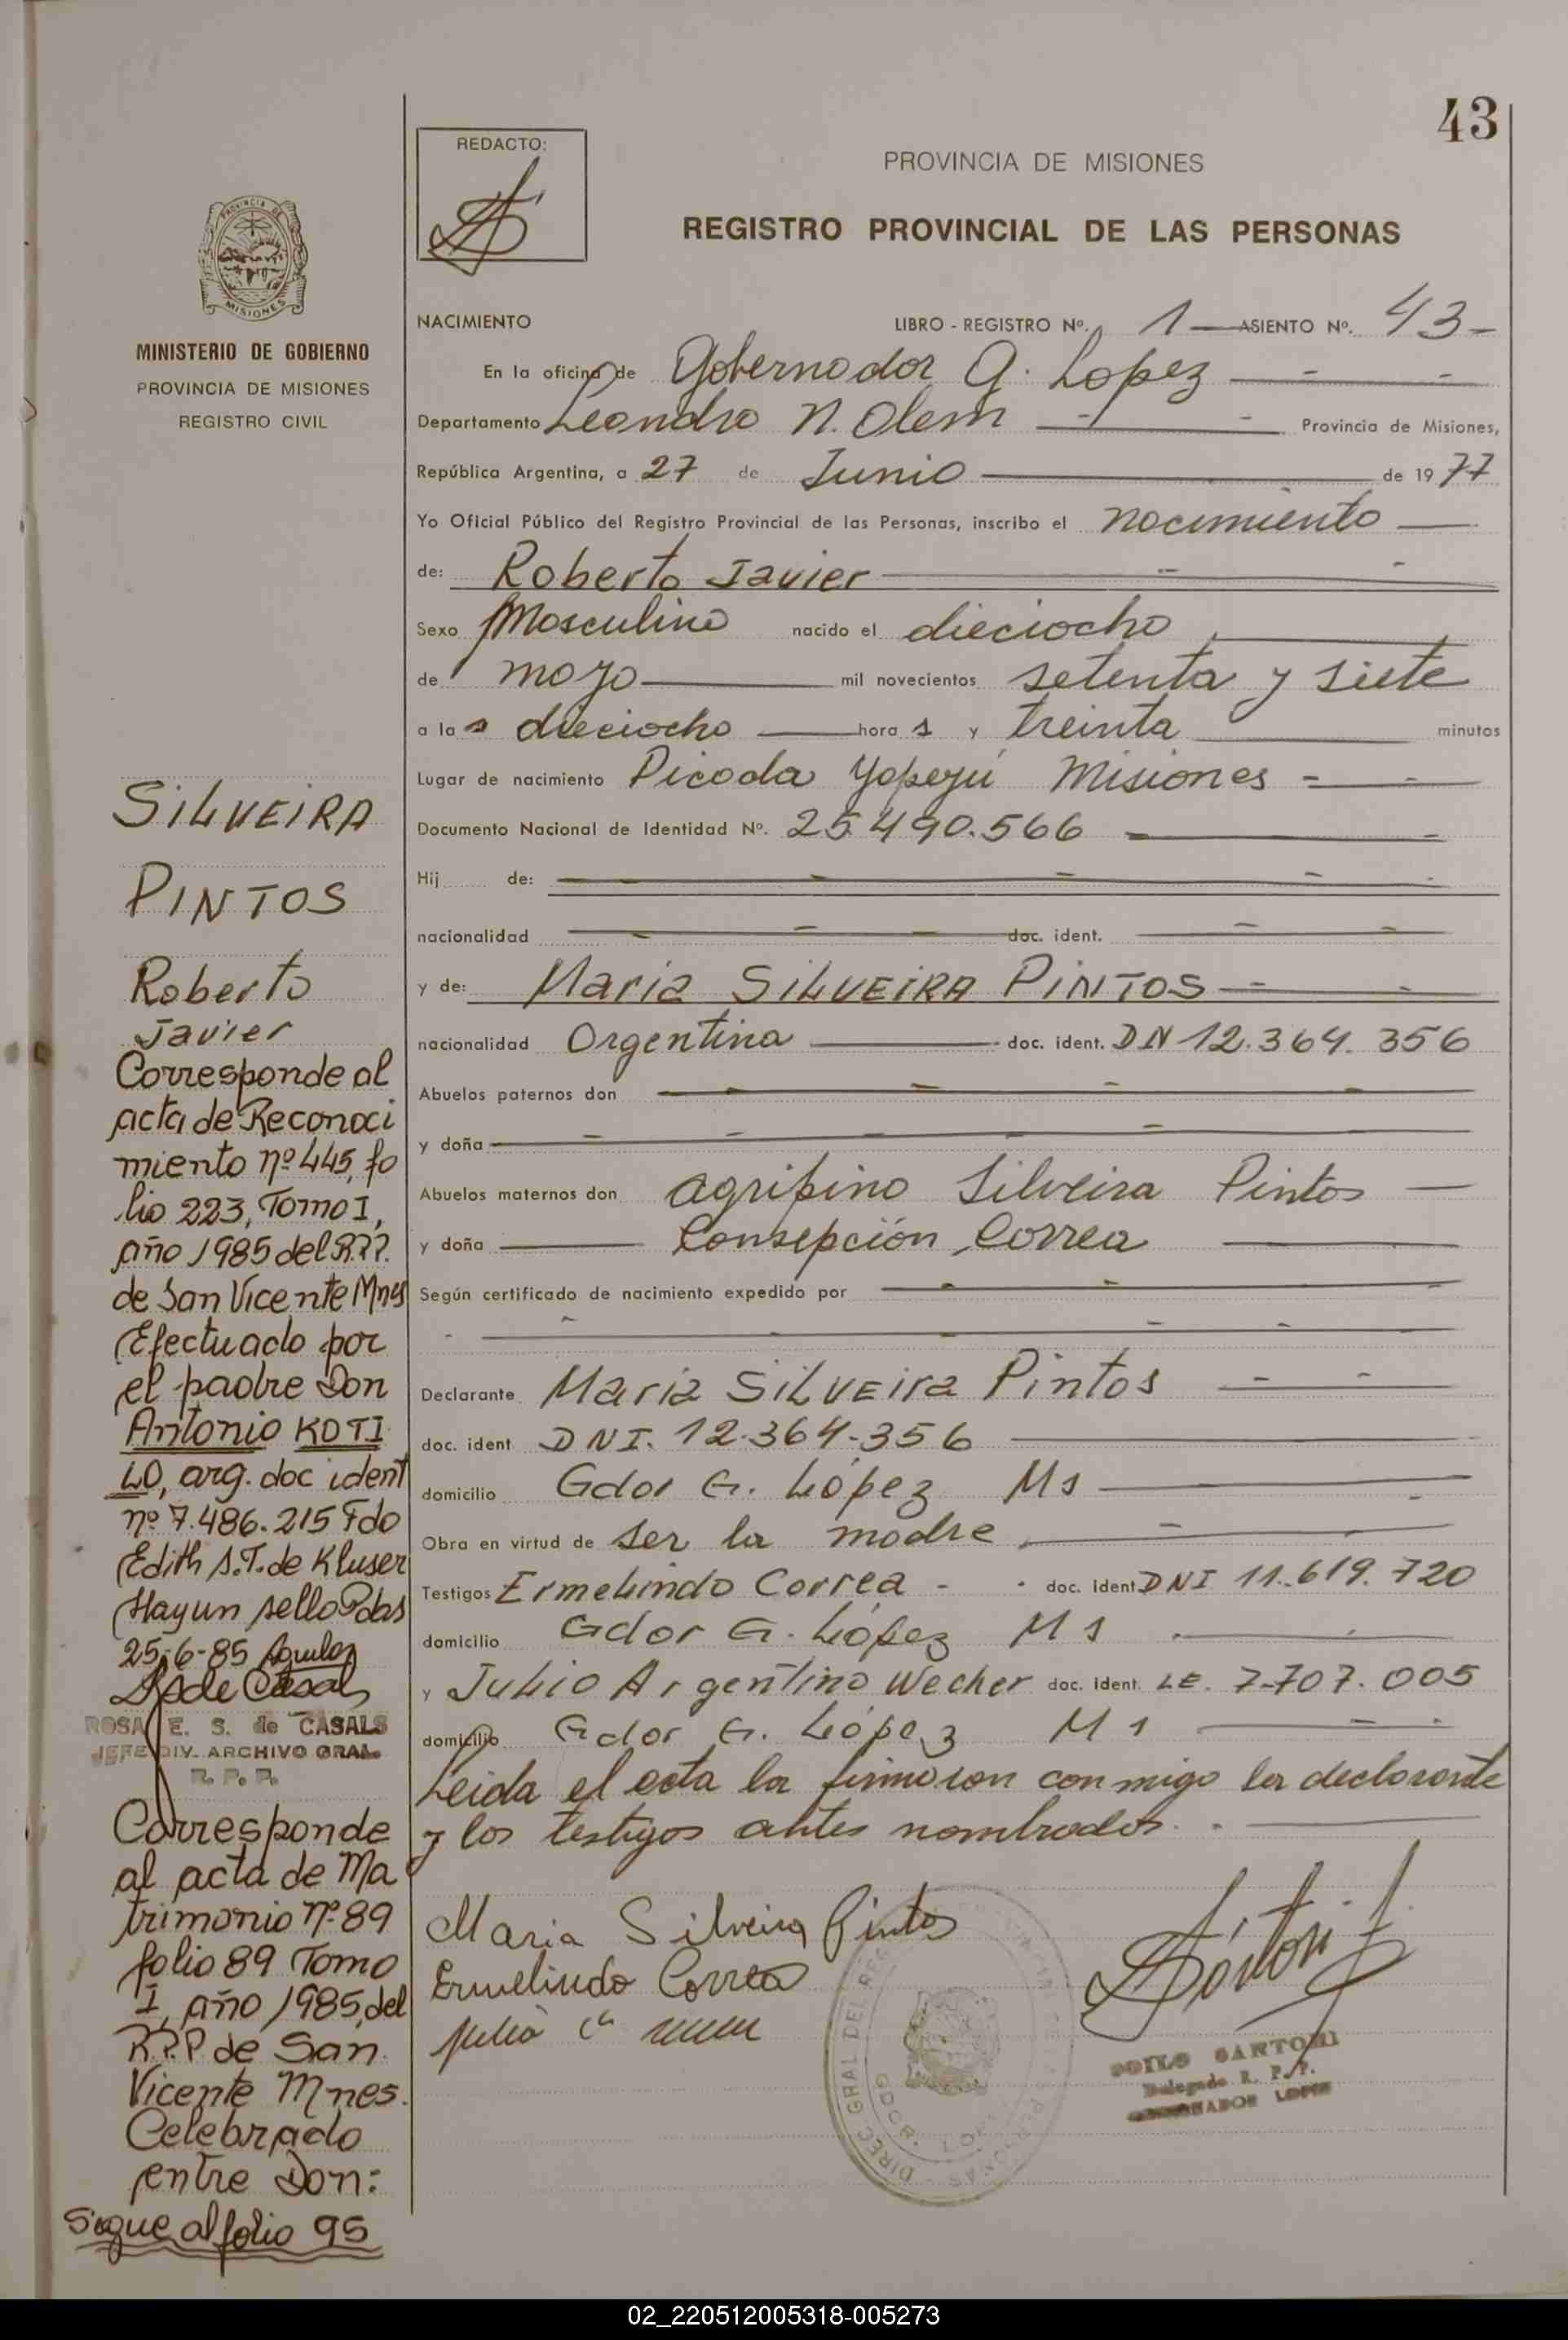 43
REDACTO:
PROVINCIA DE MISIONES
REGISTRO PROVINCIAL DE LAS PERSONAS
PROVINCIA DE
MISIONES
MINISTERIO DE GOBIERNO
PROVINCIA DE MISIONES
REGISTRO CIVIL
NACIMIENTO LIBRO - REGISTRO Nº. 1 — ASIENTO Nº. 43 -
En la oficina de Gobernador G. Lopez
Departamento Leandro N. Alem Provincia de Misiones,
República Argentina, a 27 de Junio de 1977
Yo Oficial Público del Registro Provincial de las Personas, inscribo el nacimiento
de: Roberto Javier
Sexo Masculino nacido el dieciocho
de mayo mil novecientos setenta y siete
a las dieciocho horas y treinta minutos
Lugar de nacimiento Picada Yapeyú Misiones
Documento Nacional de Identidad Nº. 25.490.566
Hij de:
nacionalidad doc. ident.
y de: Maria SILVEIRA PINTOS
nacionalidad Argentina doc. ident. DN 12.364.356
Abuelos paternos don
y doña
Abuelos maternos don agripino Silveira Pintos
y doña Consepción Correa
Según certificado de nacimiento expedido por
Declarante Maria SILVEIRA Pintos
doc. ident DNI. 12.364.356
domicilio Gdor G. López Ms
Obra en virtud de ser la madre
Testigos Ermelindo Correa doc. ident DNI 11.619.720
domicilio Gdor G. López Ms
y Julio Argentino Wecher doc. ident. LE. 7.707.005
domicilio Gdor G. López Ms
Leida el acta la firmaron conmigo la declarante
y los testigos antes nombrados.
Maria Silveira Pintos
Ermelindo Correa
Julio
Sartori
DIREC GRAL DEL REG
ZOILO SARTORI
Delegado R. P. P.
GOBERNADOR LOPEZ
SILVEIRA
PINTOS
Roberto
Javier
Corresponde al
acta de Reconoci
miento nº 445, fo
lio 223, Tomo I,
año 1985 del R.P.P.
de San Vicente Mnes
Efectuado por
el padre Don
Antonio KOTI
LO, arg. doc ident
nº 7.486.215 Fdo
Edith S.T. de Kluser
Hay un sello Pdas
25-6-85
de Casals
ROSA E. S. de CASALS
JEFE DIV. ARCHIVO GRAL.
R. P. P.
Corresponde
al acta de Ma
trimonio nº 89
folio 89 Tomo
I, año 1985, del
R.P.P de San
Vicente Mnes.
Celebrado
entre Don:
Sigue al folio 95
02_220512005318-005273